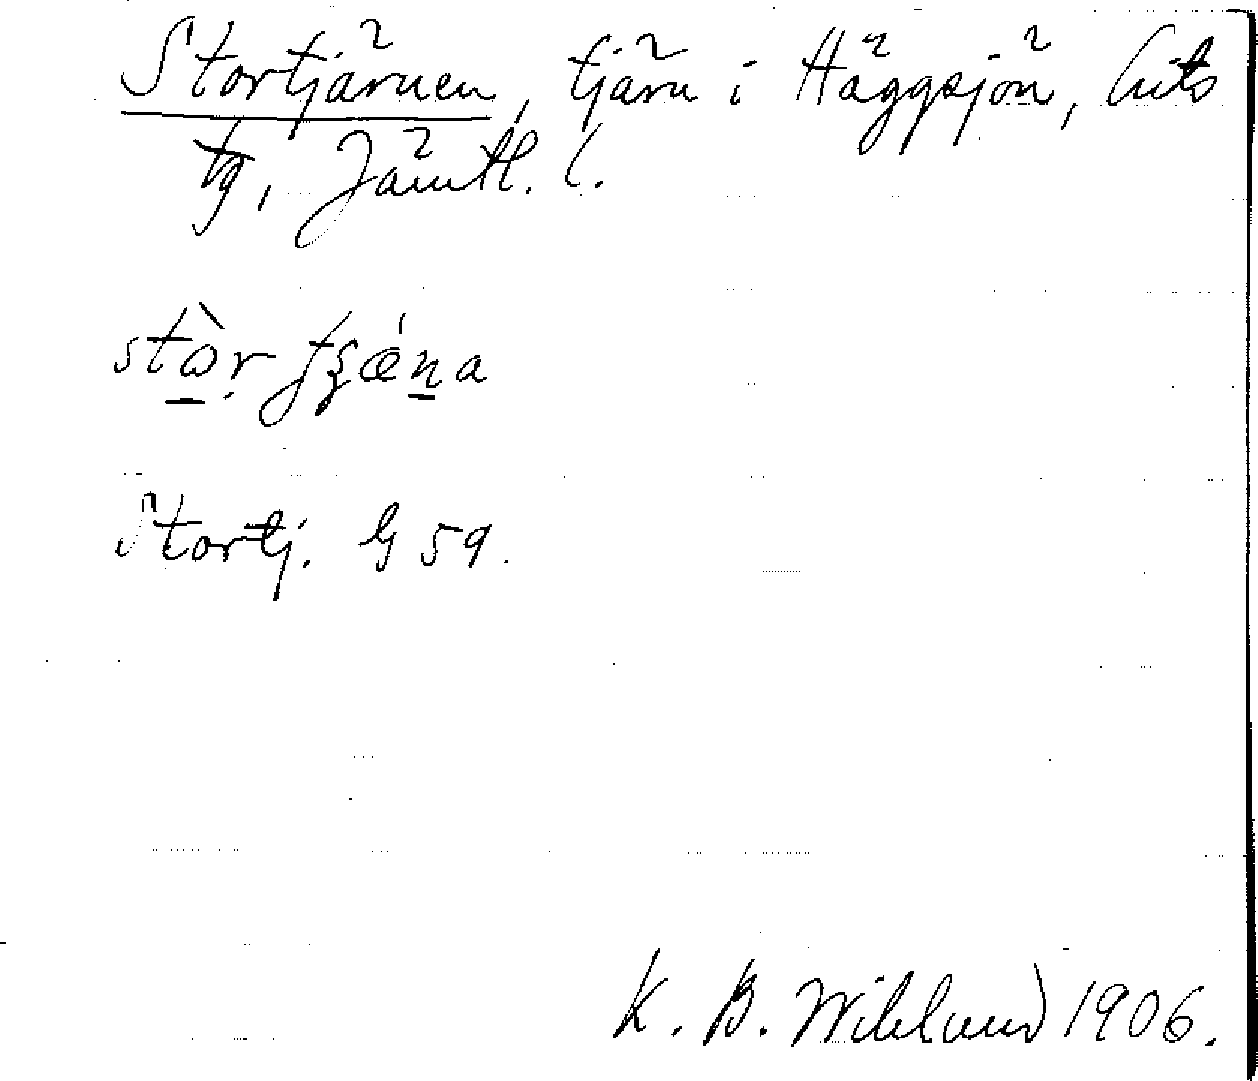 Stortjärnen, tjärn i Häggsjön, Lits
tg, Jämtl. l.
stòr tjǽna
Stortj. G 59.
K. B. Wiklund 1906.